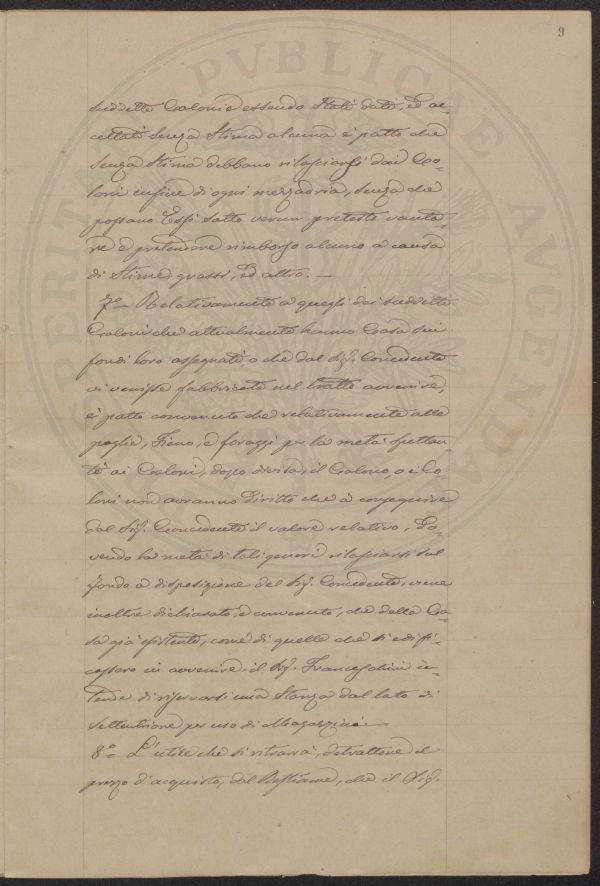 9
suddette Colonie essendo stati dati, ed ac-
cettati senza Stima alcuna è patto che
senza stima debbano rilasciarsi dai Co-
loni in fine di ogni mezzadria, senza che
possano Essi sotto verun pretesto vanta-
re e pretensione rimborso alcuno a causa
di Stime grassi, ed altro. —
7º Relativamente a quegli dei suddetti
Coloni che attualmente hanno Casa sui
fondi loro assegnati o che dal Sig. Concedente
vi venisse fabbricata nel tratto avvenire,
è patto convenuto che relativamente alle
paglie, Fieno, e foraggi per la metà spettan-
te ai Coloni, dopo divisa, il Colono, o i Co-
loni non avranno diritto che a conseguire
dal Sig. Concedente il valore relativo, Do-
vendo la metà di tali generi rilasciarsi sul
fondo a disposizione del Sig. Concedente, viene
inoltre dichiarato, e convenuto, che delle Ca-
se già esistenti, come di quelle che si edifi-
cassero in avvenire il Sig. Franceschini in-
tende di riservarsi una Stanza dal lato di
Settentrione per uso di Magazzino —
8º L'utile che si ritrarrà, detrattone il
prezzo d'acquisto, dal Bestiame, che il Sig.